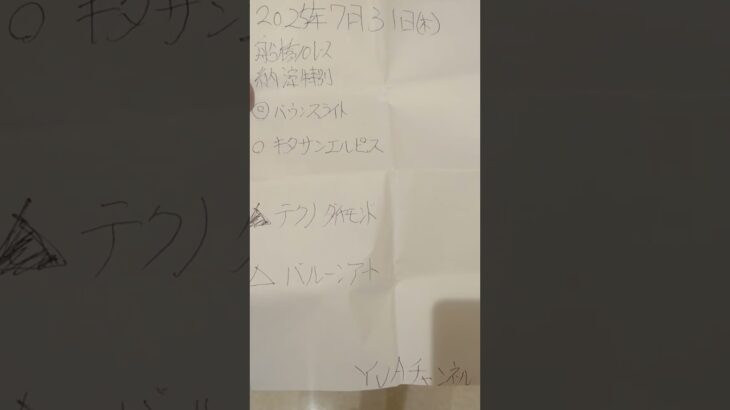 2025年7月31日(木)
船橋10Rス
納涼特別
◎バウンスライト
○キタサンエルピス
▲テクノダイヤモンド
△バルーンアート
YUAチャンネル